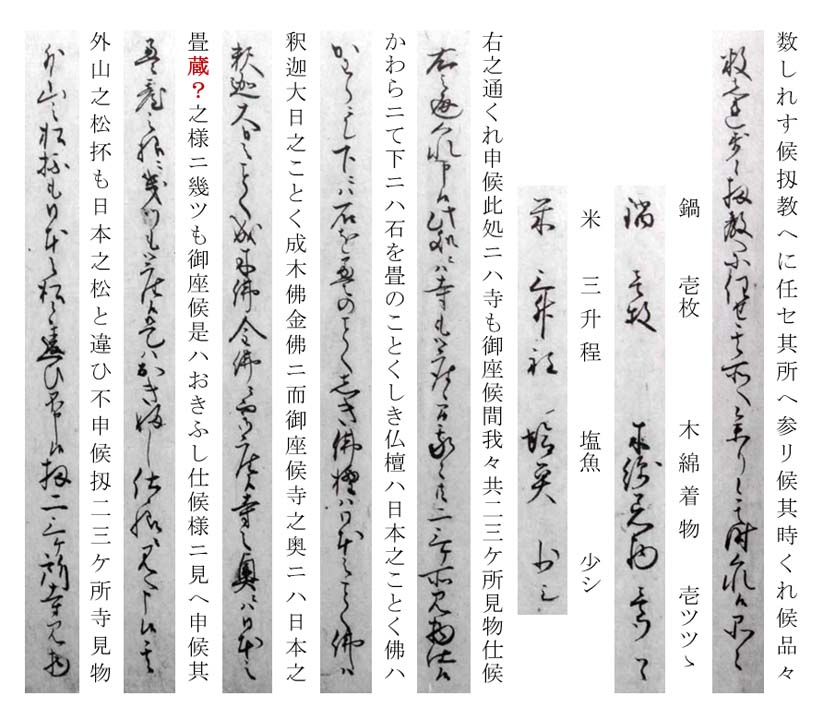 数しれす候扨教へに任セ其所へ参リ候其時くれ候品々
鍋 壱枚 木綿着物 壱ツツヽ
米 三升程 塩魚 少シ
右之通くれ申候此処ニハ寺も御座候間我々共二三ケ所見物仕候
かわらニて下ニハ石を畳のことくしき仏檀ハ日本之ことく佛ハ
釈迦大日之ことく成木佛金佛ニ而御座候寺之奥ニハ日本之
畳蔵？之様ニ幾ツも御座候是ハおきふし仕候様ニ見へ申候其
外山之松抔も日本之松と違ひ不申候扨二三ケ所寺見物